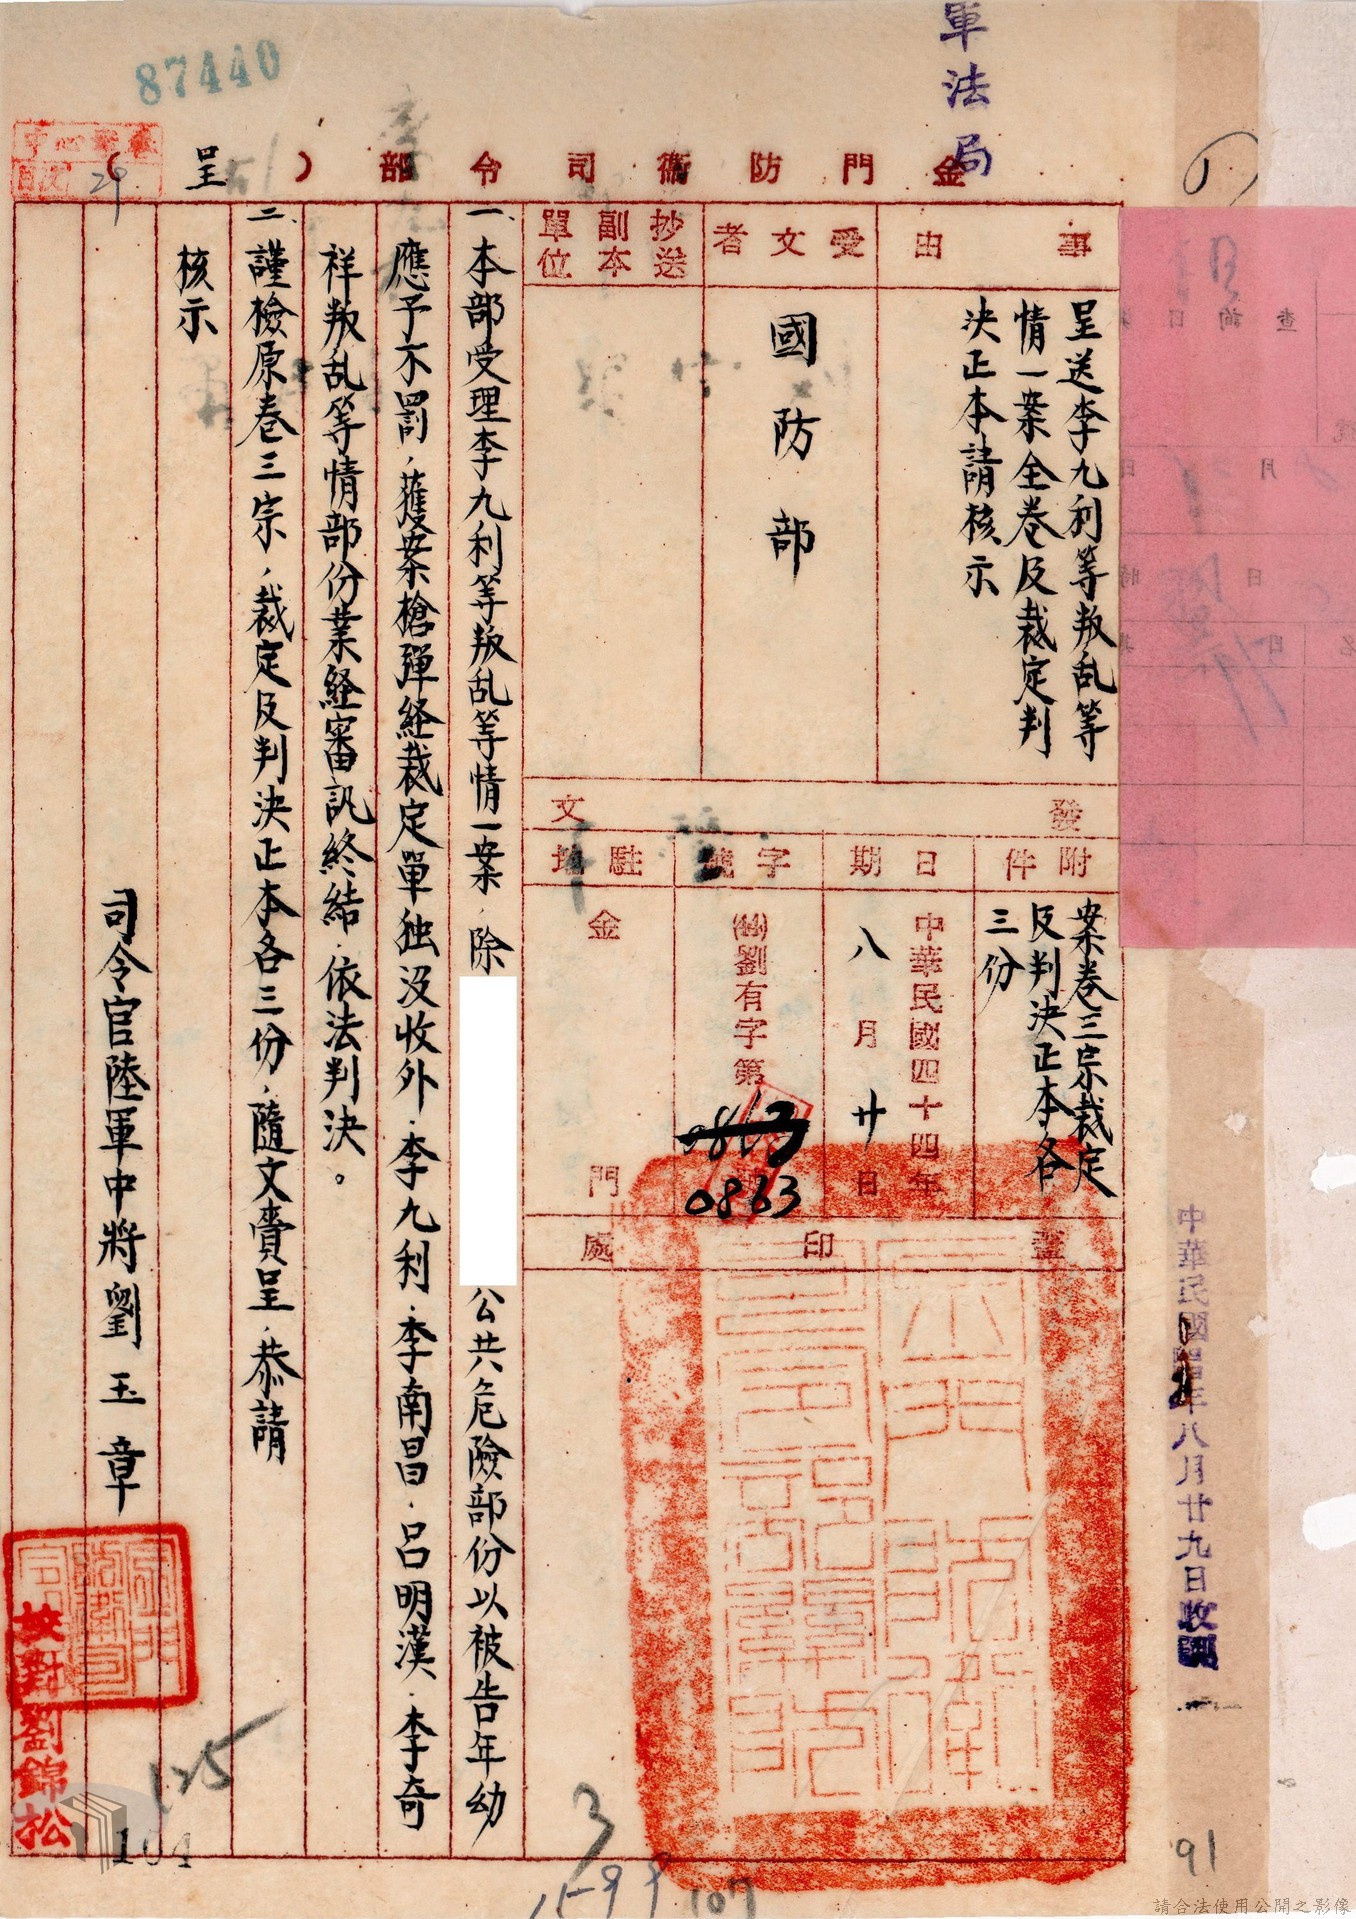 軍法局
87440
金門防衛司令部（呈）
事由
呈送李九利等叛乱等
情一案全卷及裁定判
決正本請核示
受文者
國防部
抄送
副本
單位
發文
附件
案卷三宗裁定
及判決正本各
三份
日期
中華民國四十四年
八月廿日
字號
㈣劉有字第
0863
0863
駐地
金門
蓋印處
一、本部受理李九利等叛乱等情一案，除
公共危險部份以被告年幼
應予不罰，獲案槍彈経裁定單独沒收外，李九利、李南昌、呂明漢、李奇
祥叛乱等情部份業経審訊終結，依法判決。
二、謹檢原卷三宗，裁定及判決正本各三份，隨文賷呈，恭請
核示
司令官陸軍中將劉玉章
校對劉錦松
中華民國 年八月廿九日收
29
125
104
3
107
91
請合法使用公開之影像